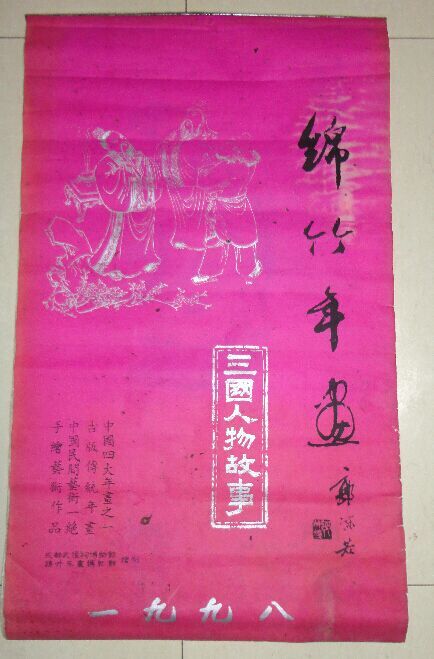 綿竹年畫
郭沫若
三國人物故事
中國四大年畫之一
古版傳統年畫
中國民間藝術一絶
手繪藝術作品
一九九八